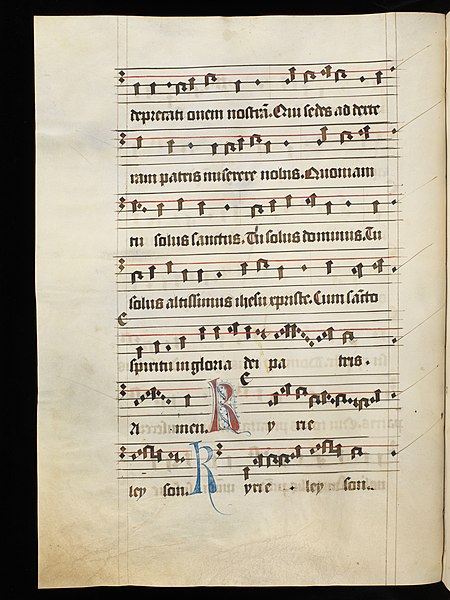 deprecati onem nostrā. Qui sedes ad derte
ram patris miserere nobis. Quoniam
tu solus sanctus. Tu solus dominus. Tu
solus altissimus ihesu xpriste. Cum sācto
spiritu in gloria dei pa tris.
A men. K y rie
ley son. K yrie . ley son.